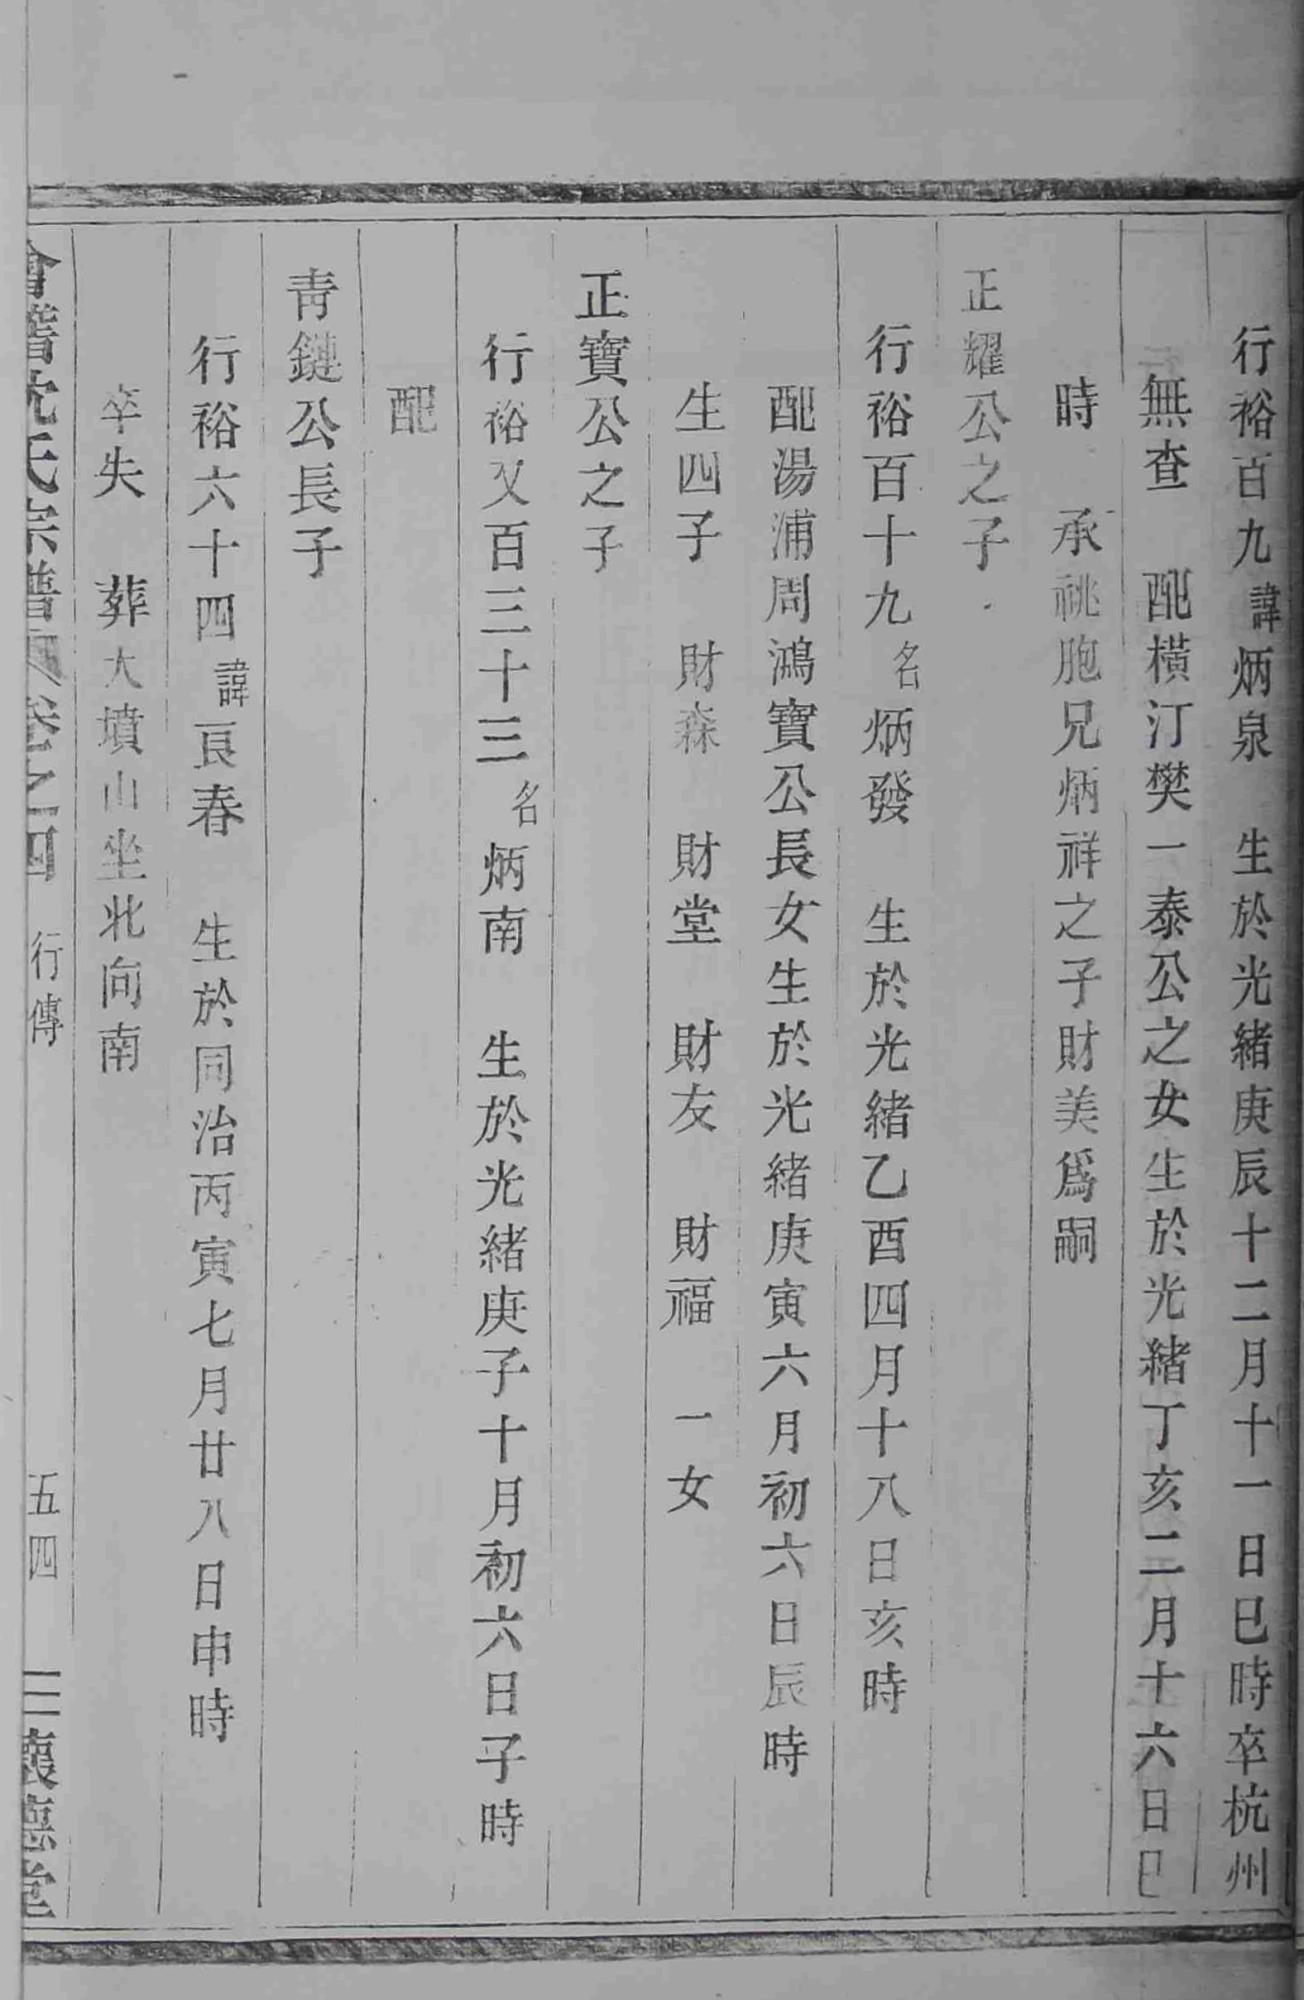 行裕百九諱炳泉 生於光緒庚辰十二月十一日巳時卒杭州
無查 配橫汀樊一泰公之女生於光緒丁亥二月十六日巳
時 承祧胞兄炳祥之子財美爲嗣
正耀公之子
行裕百十九名炳發 生於光緒乙酉四月十八日亥時
配湯浦周鴻寶公長女生於光緒庚寅六月初六日辰時
生四子 財森 財堂 財友 財福 一女
正寶公之子
行裕又百三十三名炳南 生於光緒庚子十月初六日子時
配
青鏈公長子
行裕六十四諱良春 生於同治丙寅七月廿八日申時
卒失 葬大墳山坐北向南
會稽沈氏宗譜 卷之四 行傳 五四 懷德堂